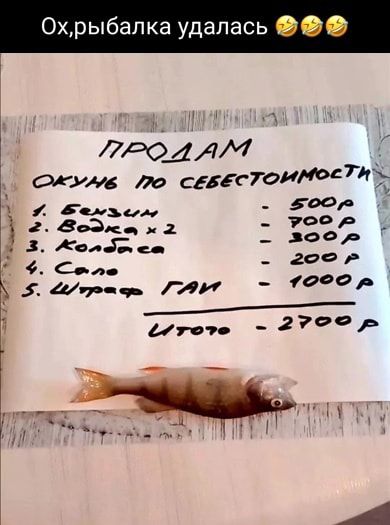 Ох,рыбалка удалась 🤣🤣🤣
ПРОДАМ
ОКУНЬ ПО СЕБЕСТОИМОСТИ
1. Бензин - 500р
2. Водка x 2 - 700р
3. Колбаса - 300р
4. Сало - 200р
5. Штраф ГАИ - 1000р
Итого - 2700р